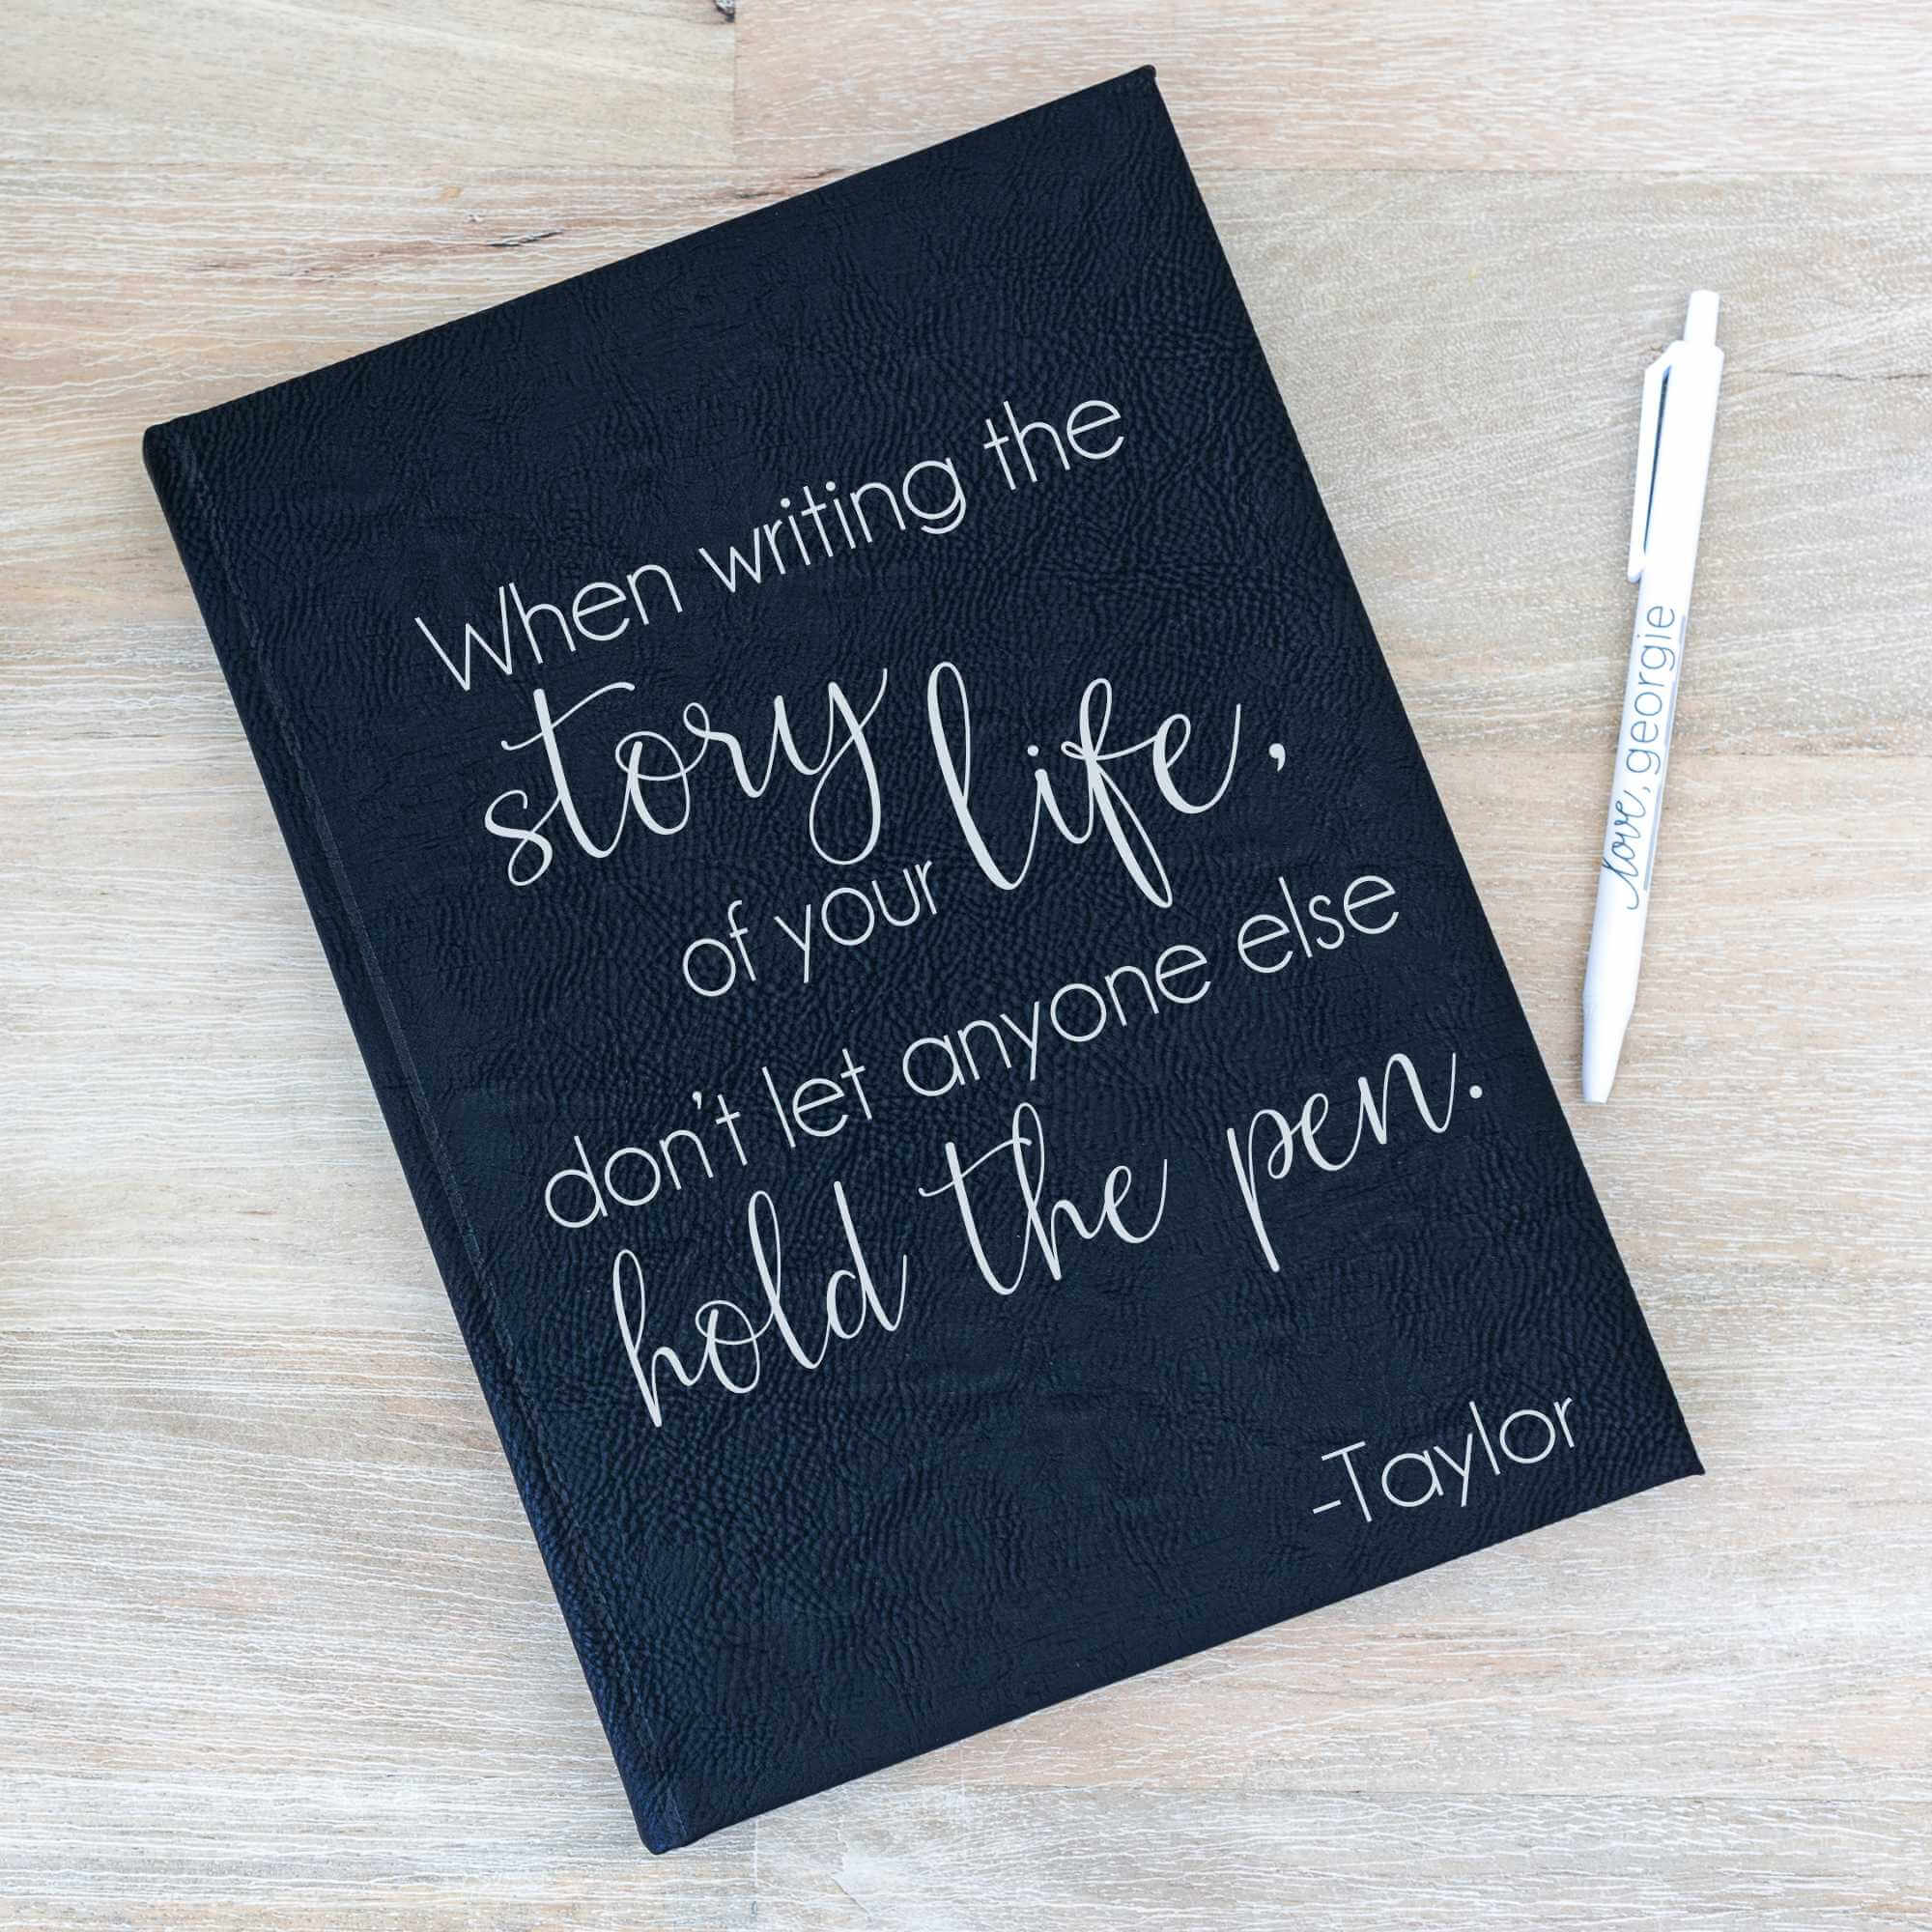 When writing the
story life,
of your
don't let anyone else
hold the pen.
-Taylor
love, georgie